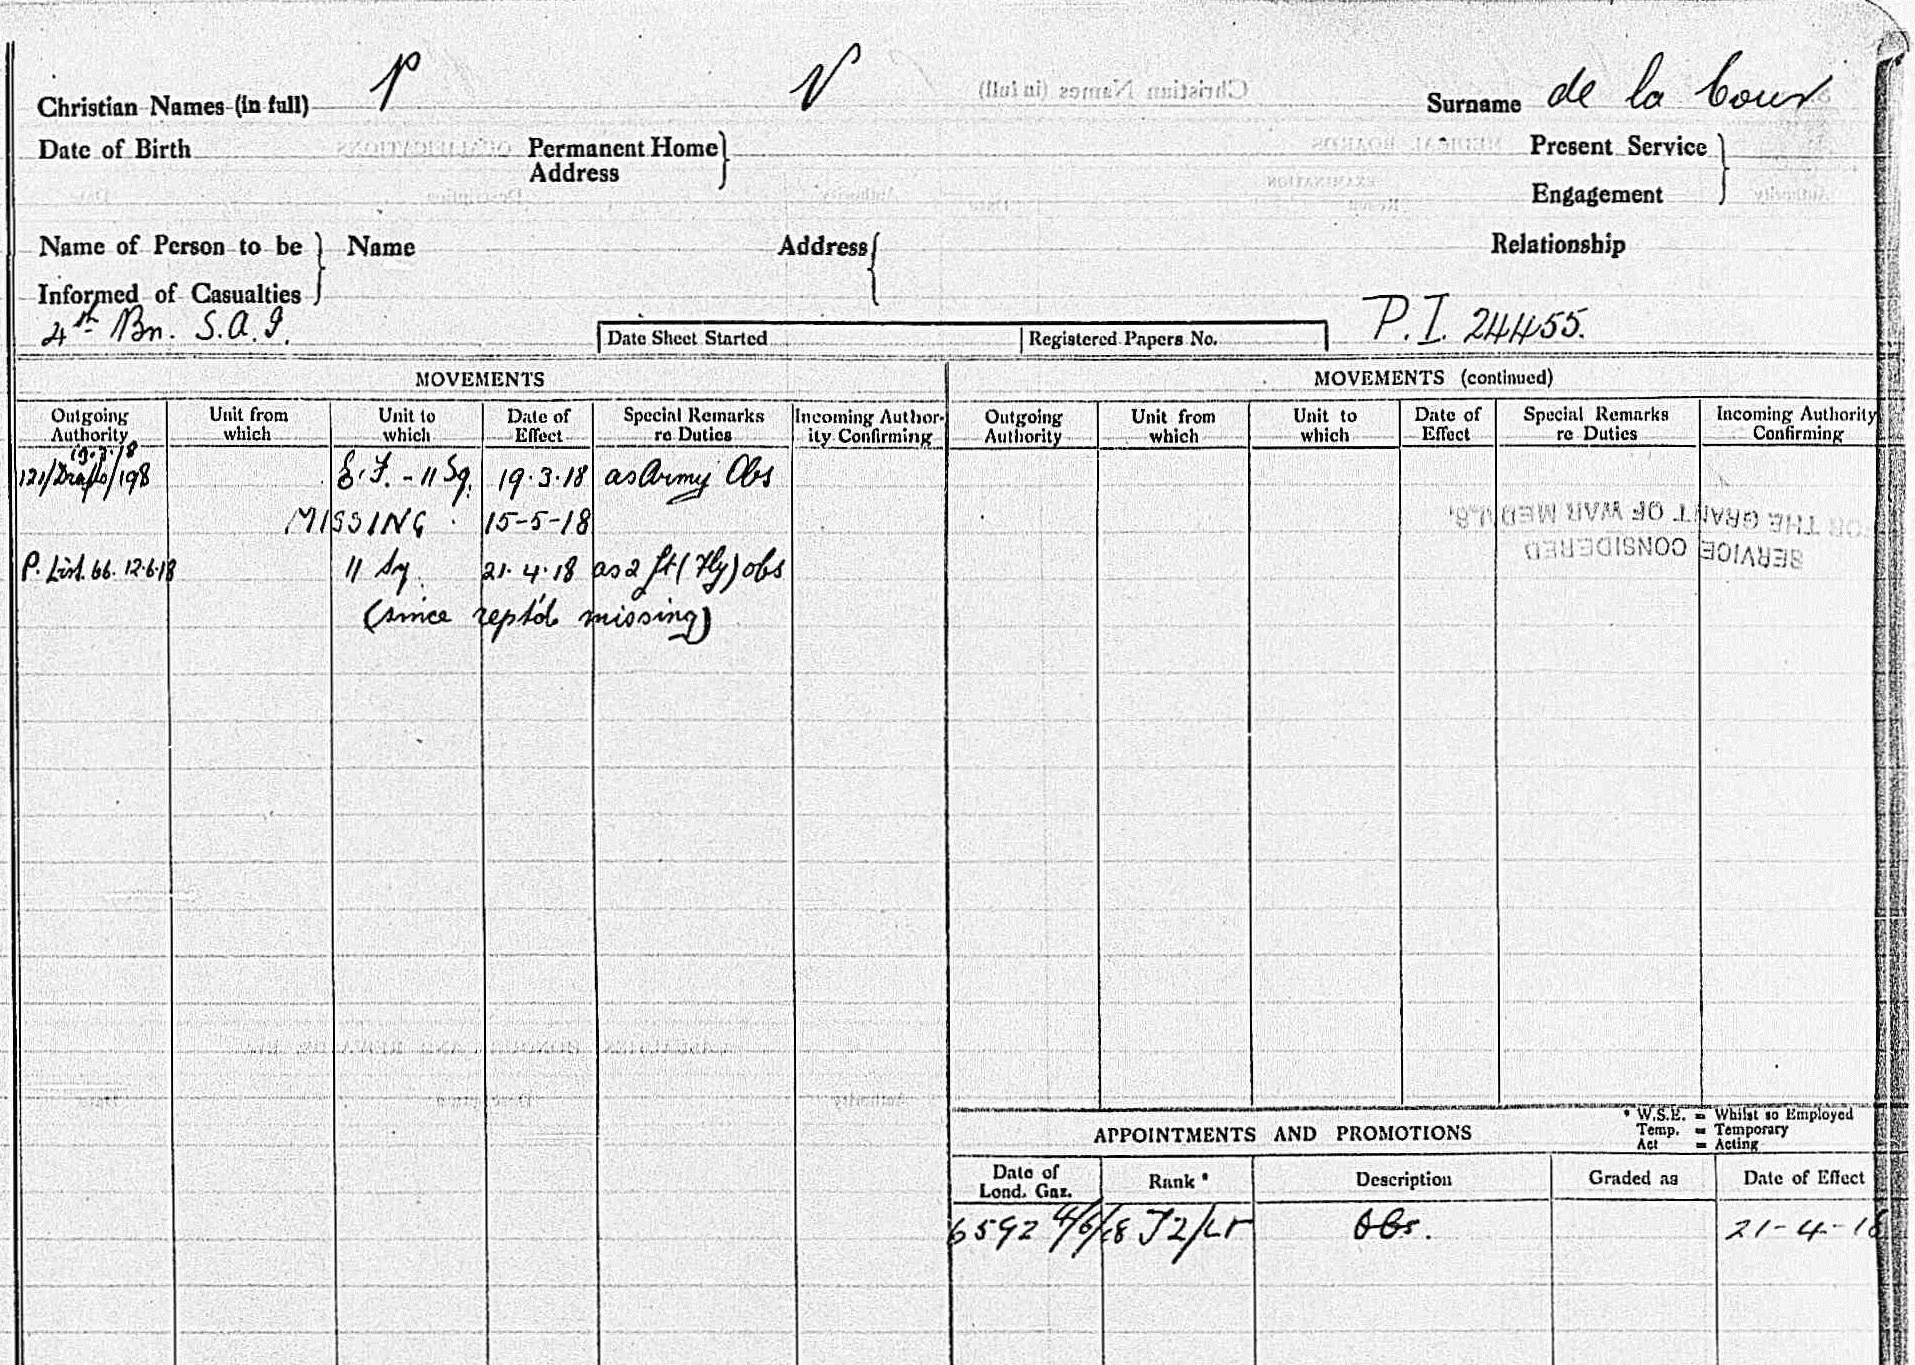 Christian Names (in full) P V Surname de la Cour
Date of Birth Permanent Home Address Present Service Engagement
Name of Person to be Informed of Casualties Name Address Relationship
4th Bn. S.A.I. Date Sheet Started Registered Papers No. P.I. 24455.
MOVEMENTS MOVEMENTS (continued)
Outgoing Authority Unit from which Unit to which Date of Effect Special Remarks re Duties Incoming Authority Confirming Outgoing Authority Unit from which Unit to which Date of Effect Special Remarks re Duties Incoming Authority Confirming
19.3.18
121/Drafts/198 E.F. - 11 Sq. 19.3.18 as Army Obs
MISSING. 15-5-18
P. List. 66. 12.6.18 11 Sq 21.4.18 as 2 Lt (Fly) obs
(since rept'd missing)
SERVICE CONSIDERED
FOR THE GRANT OF WAR MEDALS.
APPOINTMENTS AND PROMOTIONS
* W.S.E. = Whilst so Employed
Temp. = Temporary
Act = Acting
Date of Lond. Gaz. Rank * Description Graded as Date of Effect
6592 4/6/18 T2/Lt Obs. 21-4-18